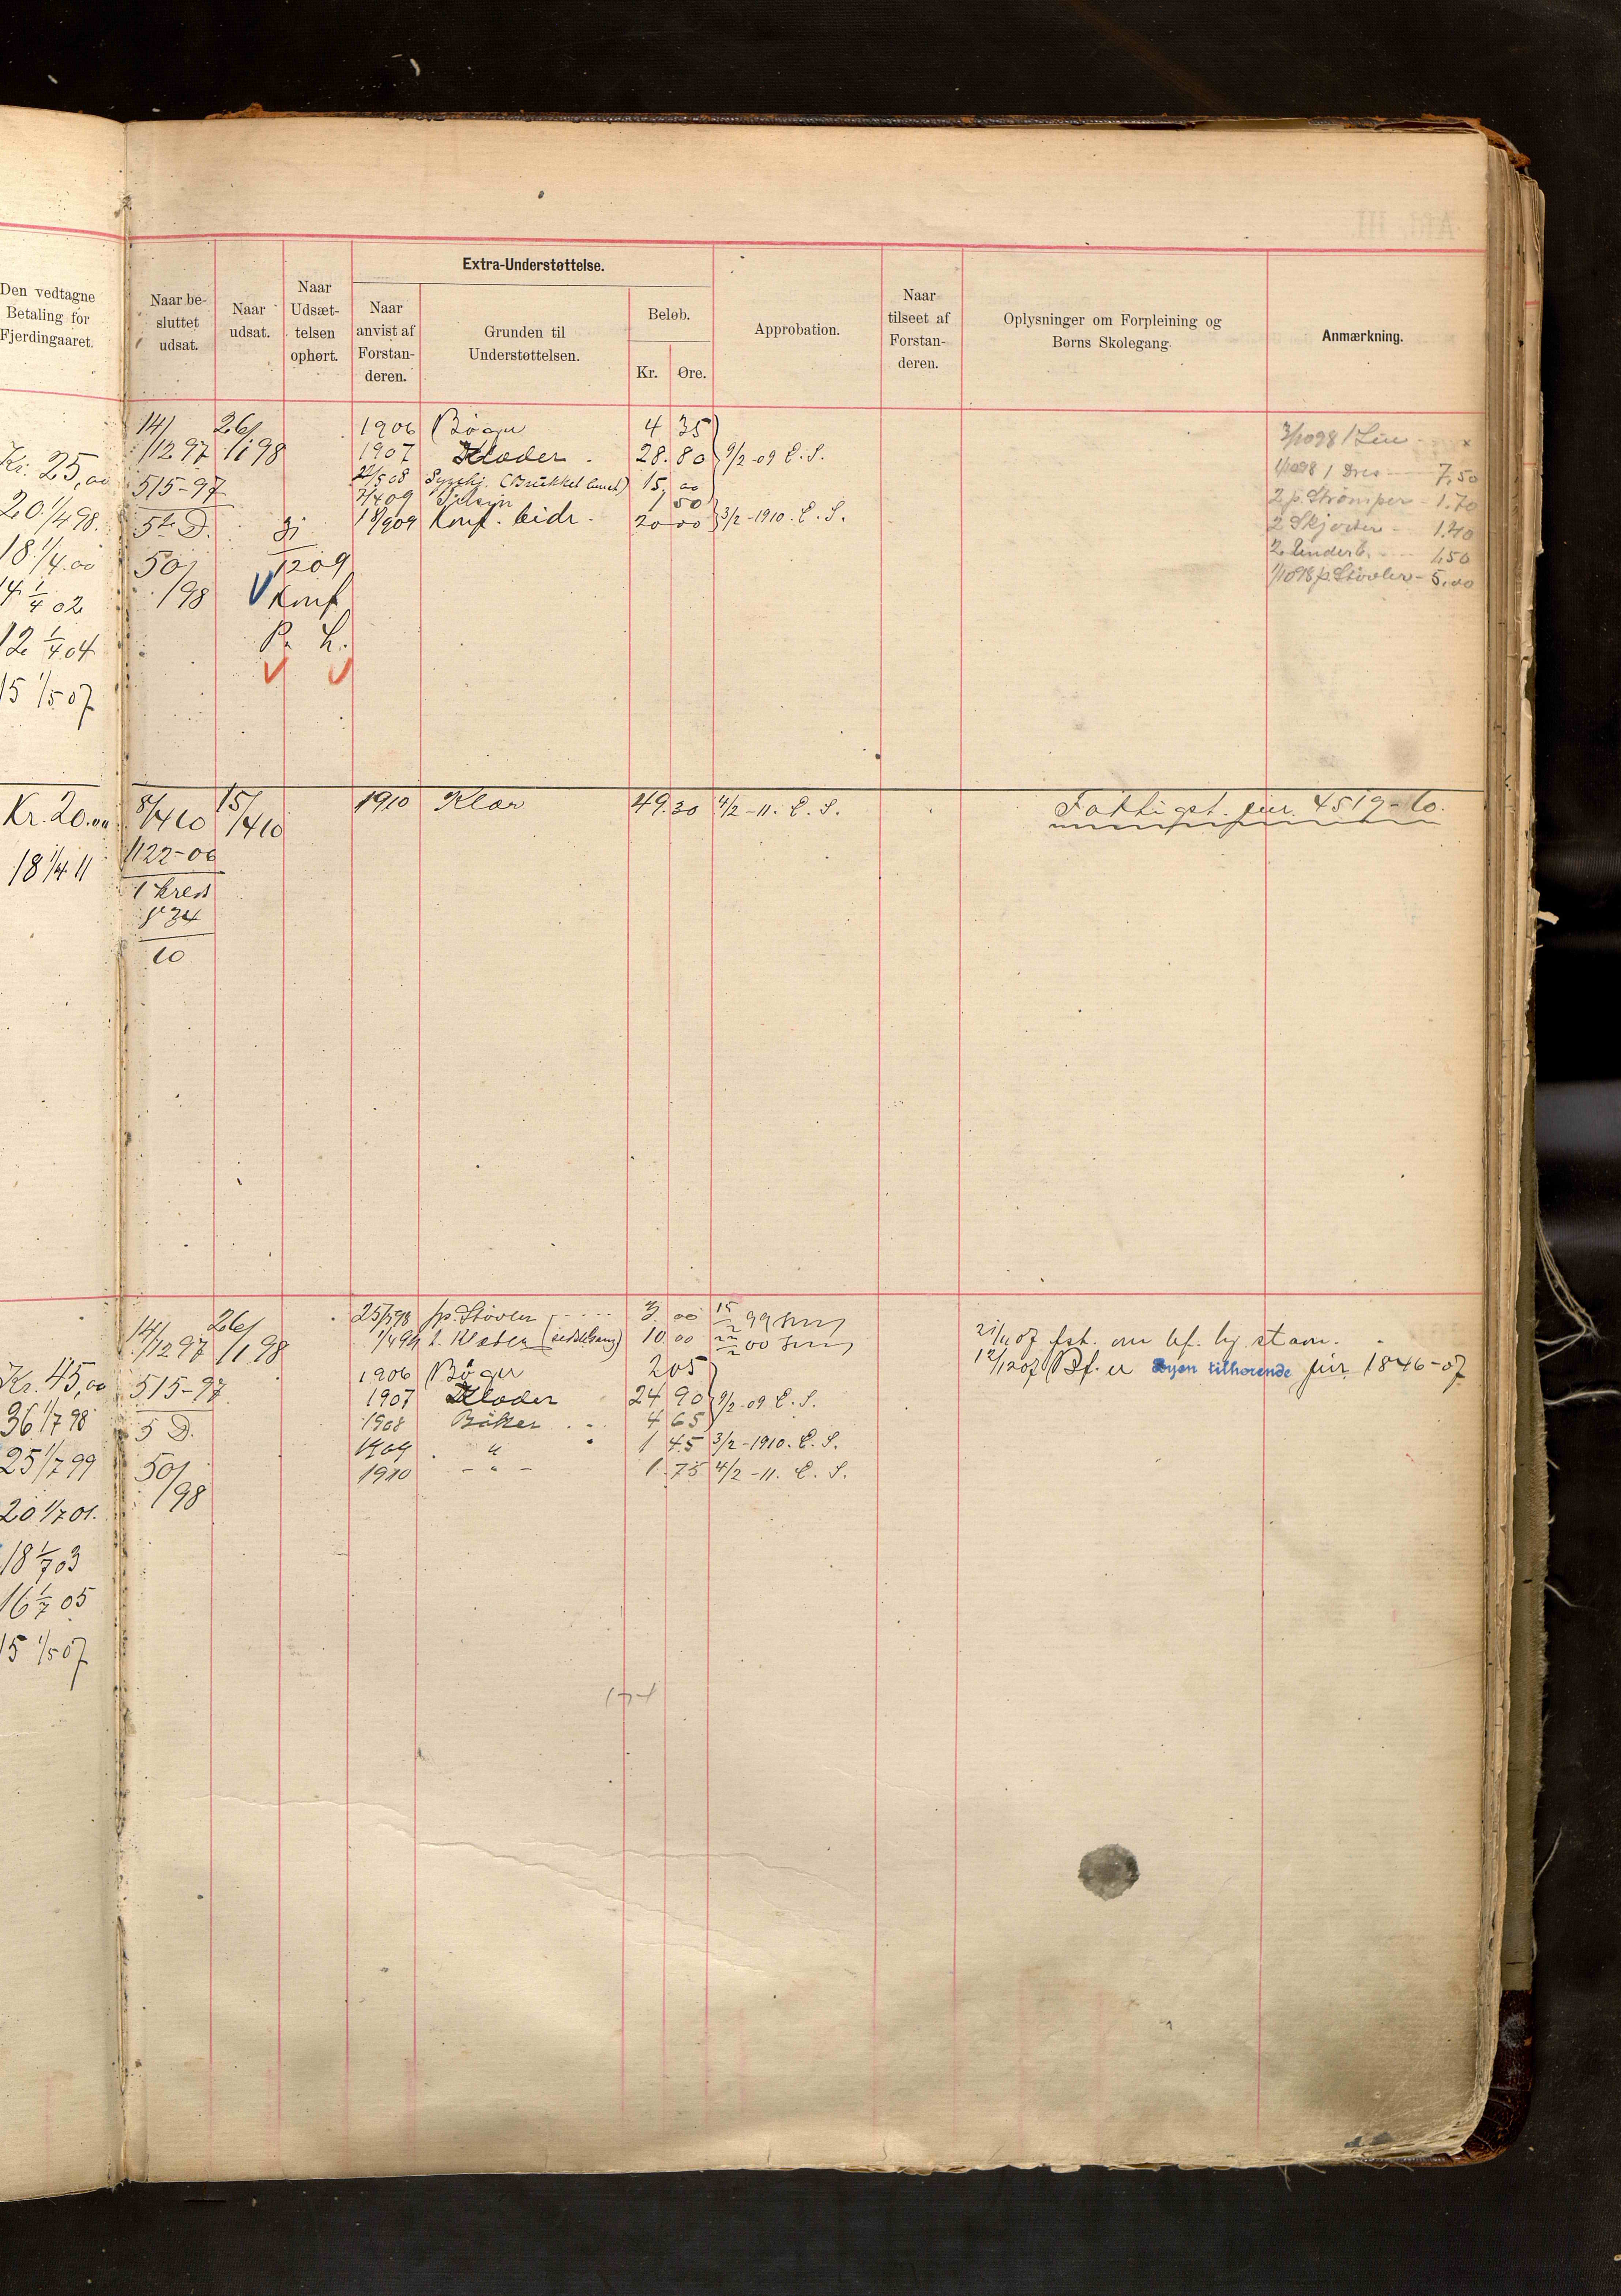 Extra-Understøttelse.
Den vedtagne
Betaling for
Fjerdingaaret.
Naar be-
sluttet
udsat.
Naar
udsat.
Naar
Udsæt-
telsen
ophørt.
Naar
anvist af
Forstan-
deren.
Grunden til
Understøttelsen.
Beløb.
Kr. Øre.
Approbation.
Naar
tilseet af
Forstan-
deren.
Oplysninger om Forpleining og
Børns Skolegang.
Anmærkning.
Kr. 25,00
20 1/4 98.
18 1/4.00
14 1/4 02
12 1/4 04
15 1/5 07
14/12 97 26/1 98
515-97
5te D.
50/98
1/10 09
Konf.
1906 Bøger 4 35
1907 Klæder 28.80 9/2-09 C. S.
15,00
1 50
18/9 09 Konf. bidr. 20 00 3/2-1910. C. S.
1 Dres 7,50
2 p. Strømper - 1.70
2 Skjorter 1.40
2 Underb. 1,50
1/10 98 p. Støvler - 5,00
Kr. 20.00 8/4 10 15/4 10 1910 Klær 49.30 4/2-11. C. S. Fattigst. jur. 4519-10.
18 1/4 11
1122-06
1 Kreds
10
Kr. 45,00
36 1/7 98
25 1/7 99
20 1/7 01.
18 1/7 03
16 1/7 05
15 1/5 07
14/12 97 26/1 98
515-97
5 D.
50/98
25/5 98 1 p. Støvler 3.00 15/2 99
1/4 99 t. Klæder 10 00
1906 Bøger 2 05
1907 Klæder 24 90 9/2-09 C. S.
1908 Bøker 4 65
1909 " 1 45 3/2-1910. C. S.
1910 - " - 1.75 4/2-11. C. S.
21/11 07 fst. om bf. hj. stavn.
12/12 07 Bf. er Byen tilhørende jur. 1846-07